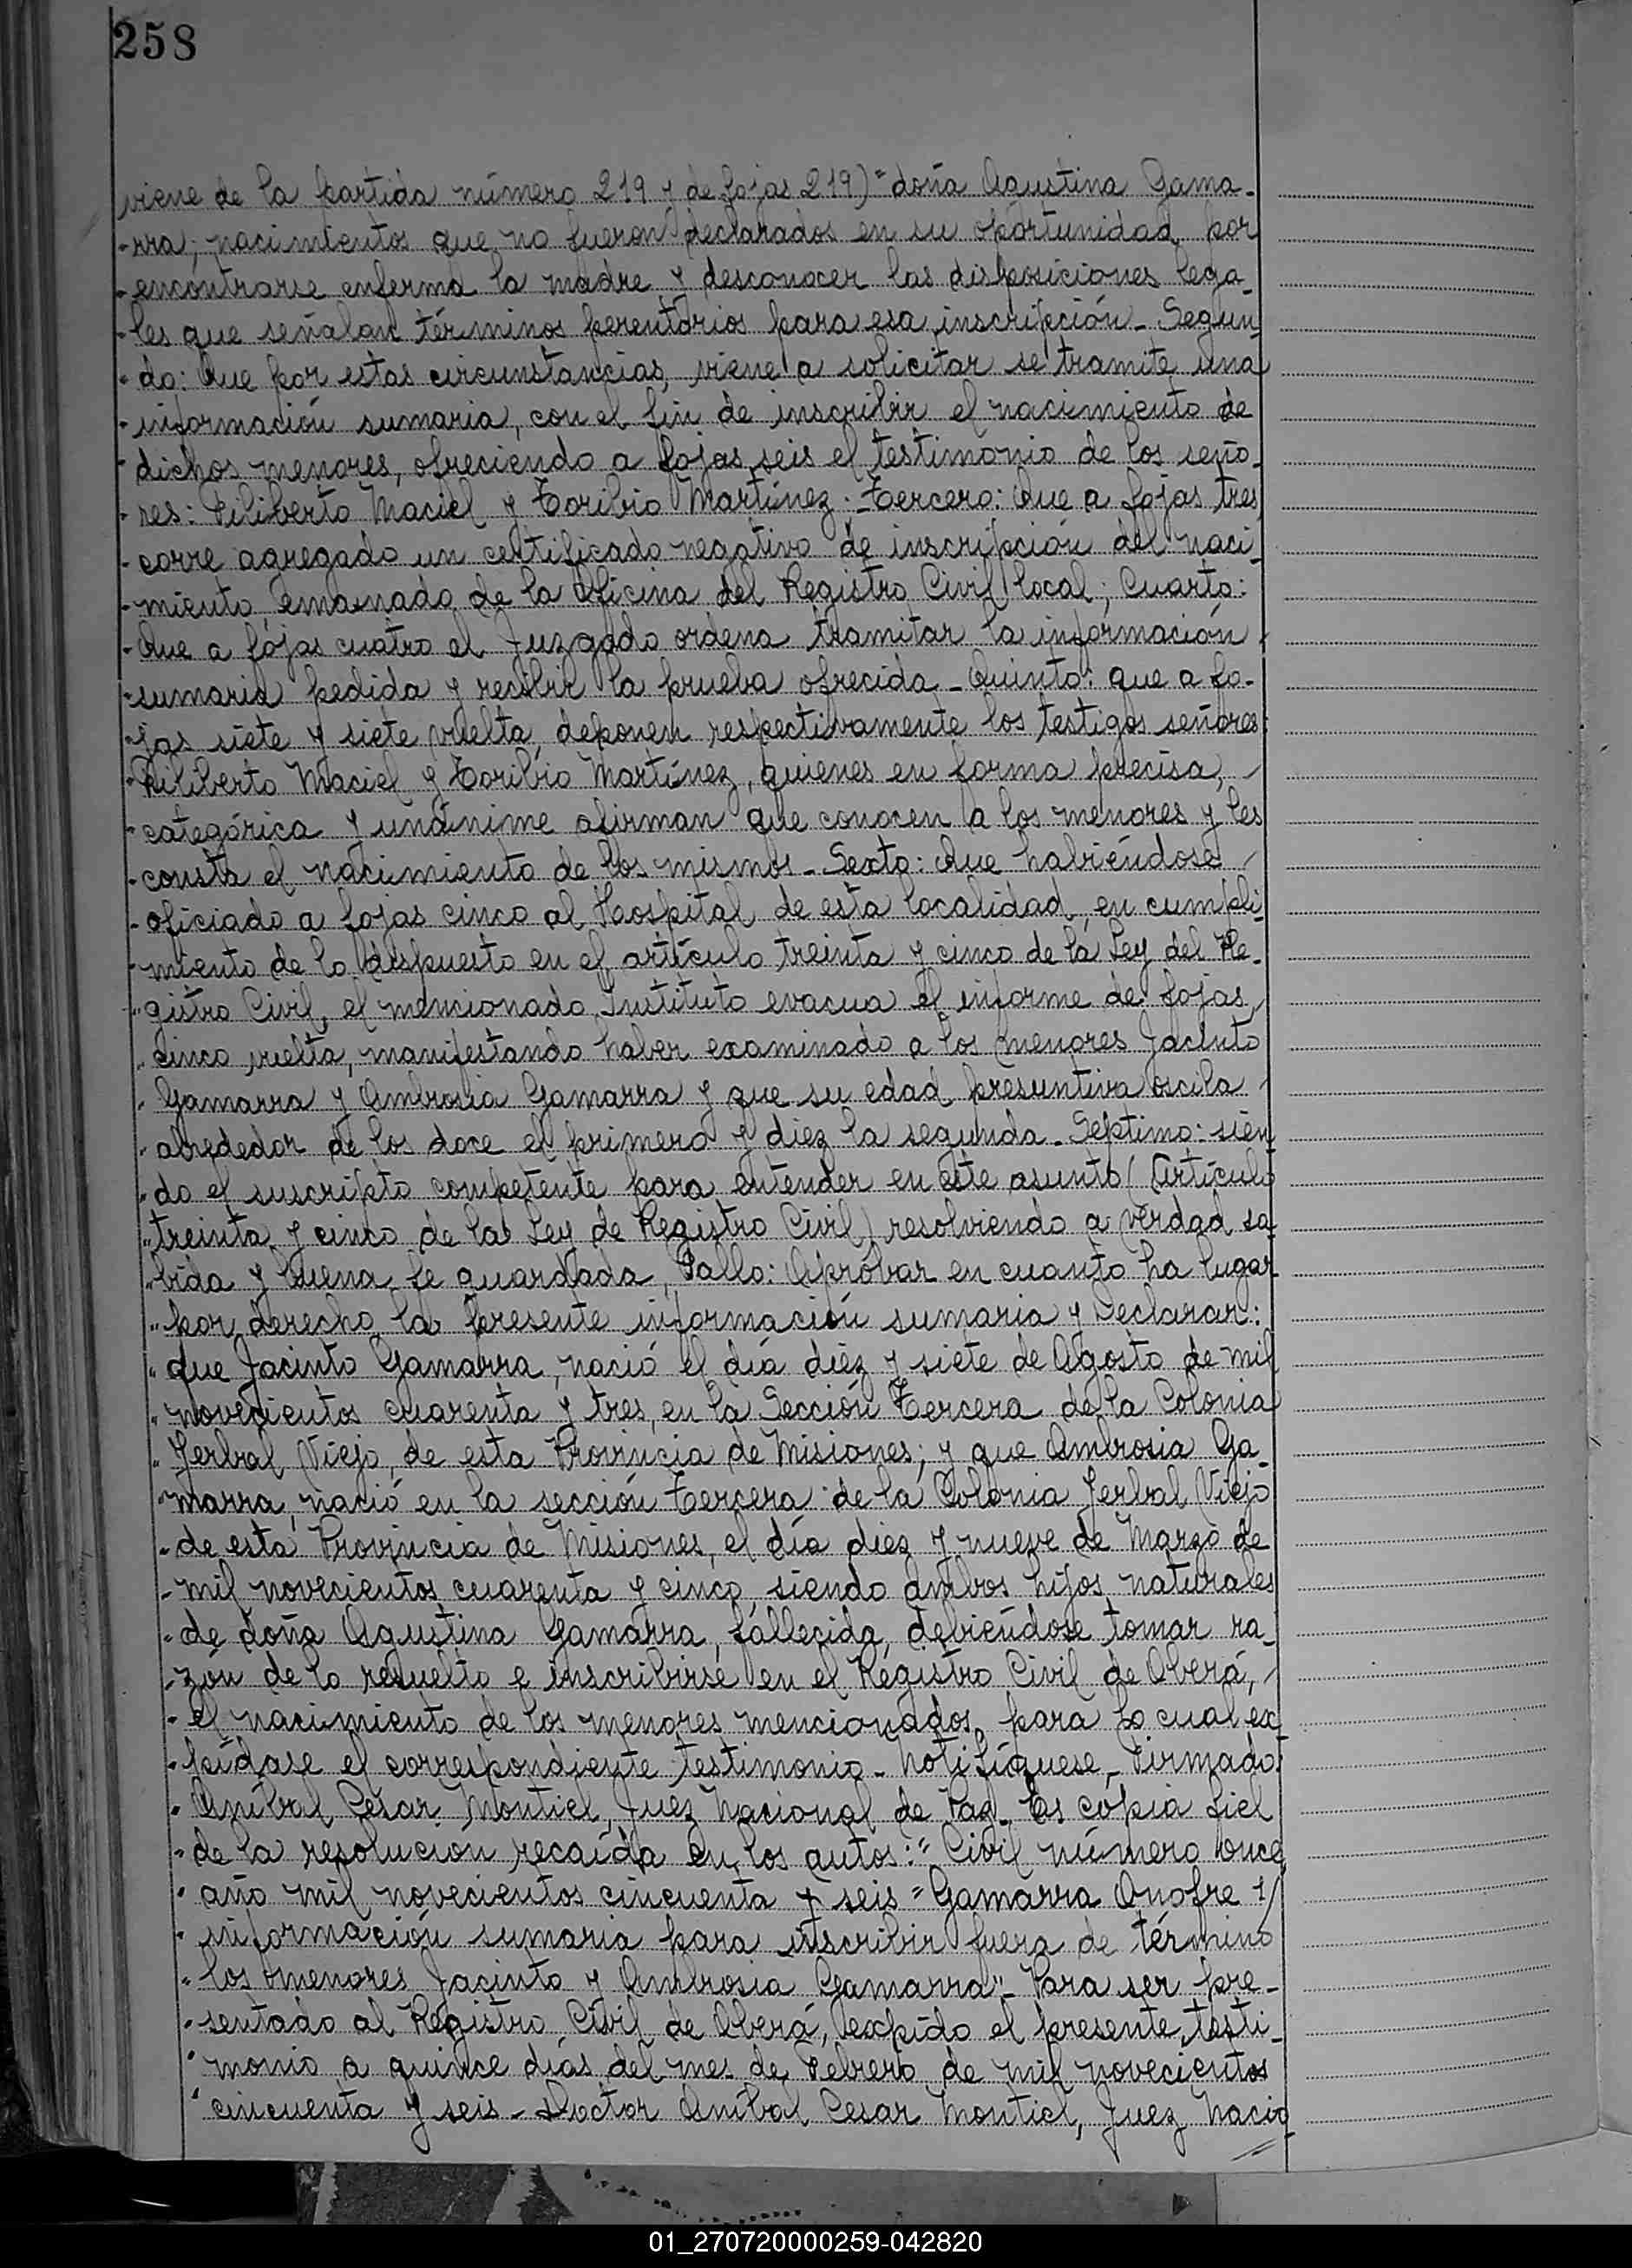 258
viene de la partida número 219 y de fojas 219)" doña Agustina Gama-
"rra; nacimientos que no fueron declarados en su oportunidad por
"encontrarse enferma la madre y desconocer las disposiciones lega-
"les que señalan términos perentorios para esa inscripción - Segun
"do: Que por estas circunstancias, viene a solicitar se tramite una
"información sumaria, con el fin de inscribir el nacimiento de
"dichos menores, ofreciendo a fojas seis el testimonio de los seño-
"res: Filiberto Maciel y Toribio Martínez.- Tercero: Que a fojas tres
"corre agregado un certificado negativo de inscripción del naci-
"miento, emanado de la Oficina del Registro Civil local; Cuarto:
"Que a fojas cuatro el Juzgado ordena tramitar la información
"sumaria pedida y recibir la prueba ofrecida - Quinto: que a fo-
"jas siete y siete vuelta, deponen respectivamente los testigos señores:
"Filiberto Maciel y Toribio Martínez, quienes en forma precisa,
"categórica y unánime afirman que conocen a los menores y les
"consta el nacimiento de los mismos - Sexto: Que habiéndose
"oficiado a fojas cinco al Hospital de esta localidad, en cumpli-
"miento de lo dispuesto en el artículo treinta y cinco de la Ley del Re-
"gistro Civil, el mencionado Instituto evacua el informe de fojas
"cinco vuelta, manifestando haber examinado a los menores Jacinto
"Gamarra y Ambrosia Gamarra y que su edad presuntiva oscila
"alrededor de los doce el primero y diez la segunda - Septimo: sien
"do el suscripto competente para entender en este asunto (Artículo
"treinta y cinco de la Ley de Registro Civil) resolviendo a verdad sa
"bida y buena fe guardada, Fallo: Aprobar en cuanto ha lugar
"por derecho la presente información sumaria y Declarar:
"que Jacinto Gamarra, nació el día diez y siete de Agosto de mil
"novecientos cuarenta y tres, en la Sección Tercera de la Colonia
"Yerbal Viejo, de esta Provincia de Misiones; y que Ambrosia Ga-
"marra, nació en la sección Tercera de la Colonia Yerbal Viejo
"de esta Provincia de Misiones, el día diez y nueve de Marzo de
"mil novecientos cuarenta y cinco, siendo ambos hijos naturales
"de doña Agustina Gamarra, fallecida, debiéndose tomar ra-
"zón de lo resuelto e inscribirse en el Registro Civil de Oberá,
"el nacimiento de los menores mencionados, para lo cual ex
"pídase el correspondiente testimonio - Notifíquese - Firmado:
"Aníbal Cesar Montiel, Juez Nacional de Paz - Es copia fiel
"de la resolución recaída en los autos: "Civil número once
"año mil novecientos cincuenta y seis "Gamarra Onofre s/
"información sumaria para inscribir fuera de término
"los menores Jacinto y Ambrosia Gamarra" - Para ser pre-
"sentado al Registro Civil de Oberá, expido el presente testi-
"monio a quince días del mes de Febrero de mil novecientos
"cincuenta y seis - Doctor Aníbal Cesar Montiel, Juez Nacio
01_270720000259-042820